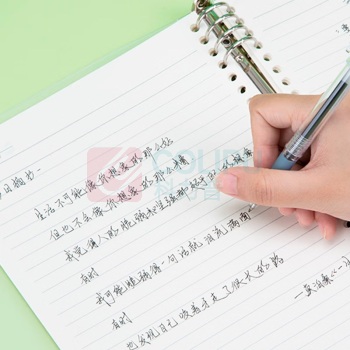 日摘抄:
生活不可能像你想象的那么好
但也不会像你想象的那么糟
我觉得人的脆弱和坚强都
有时
我可能脆弱得一句话就泪流满面
有时
也发现自己咬着牙走了很长的路
—莫泊桑《一生